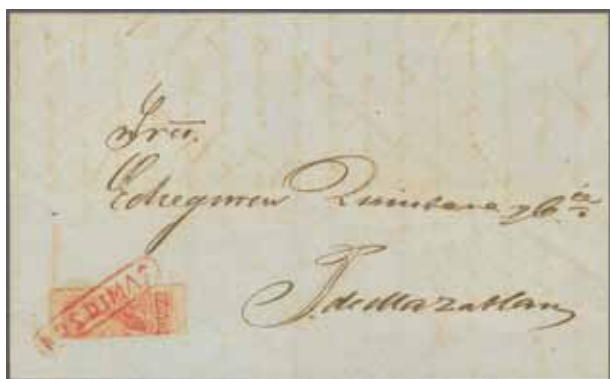 Sres.
Echeguren Quintana y Cía
P. de Mazatlan
S. DIMAS